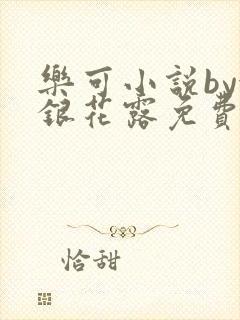 樂可小說by
銀花露免費
恰甜